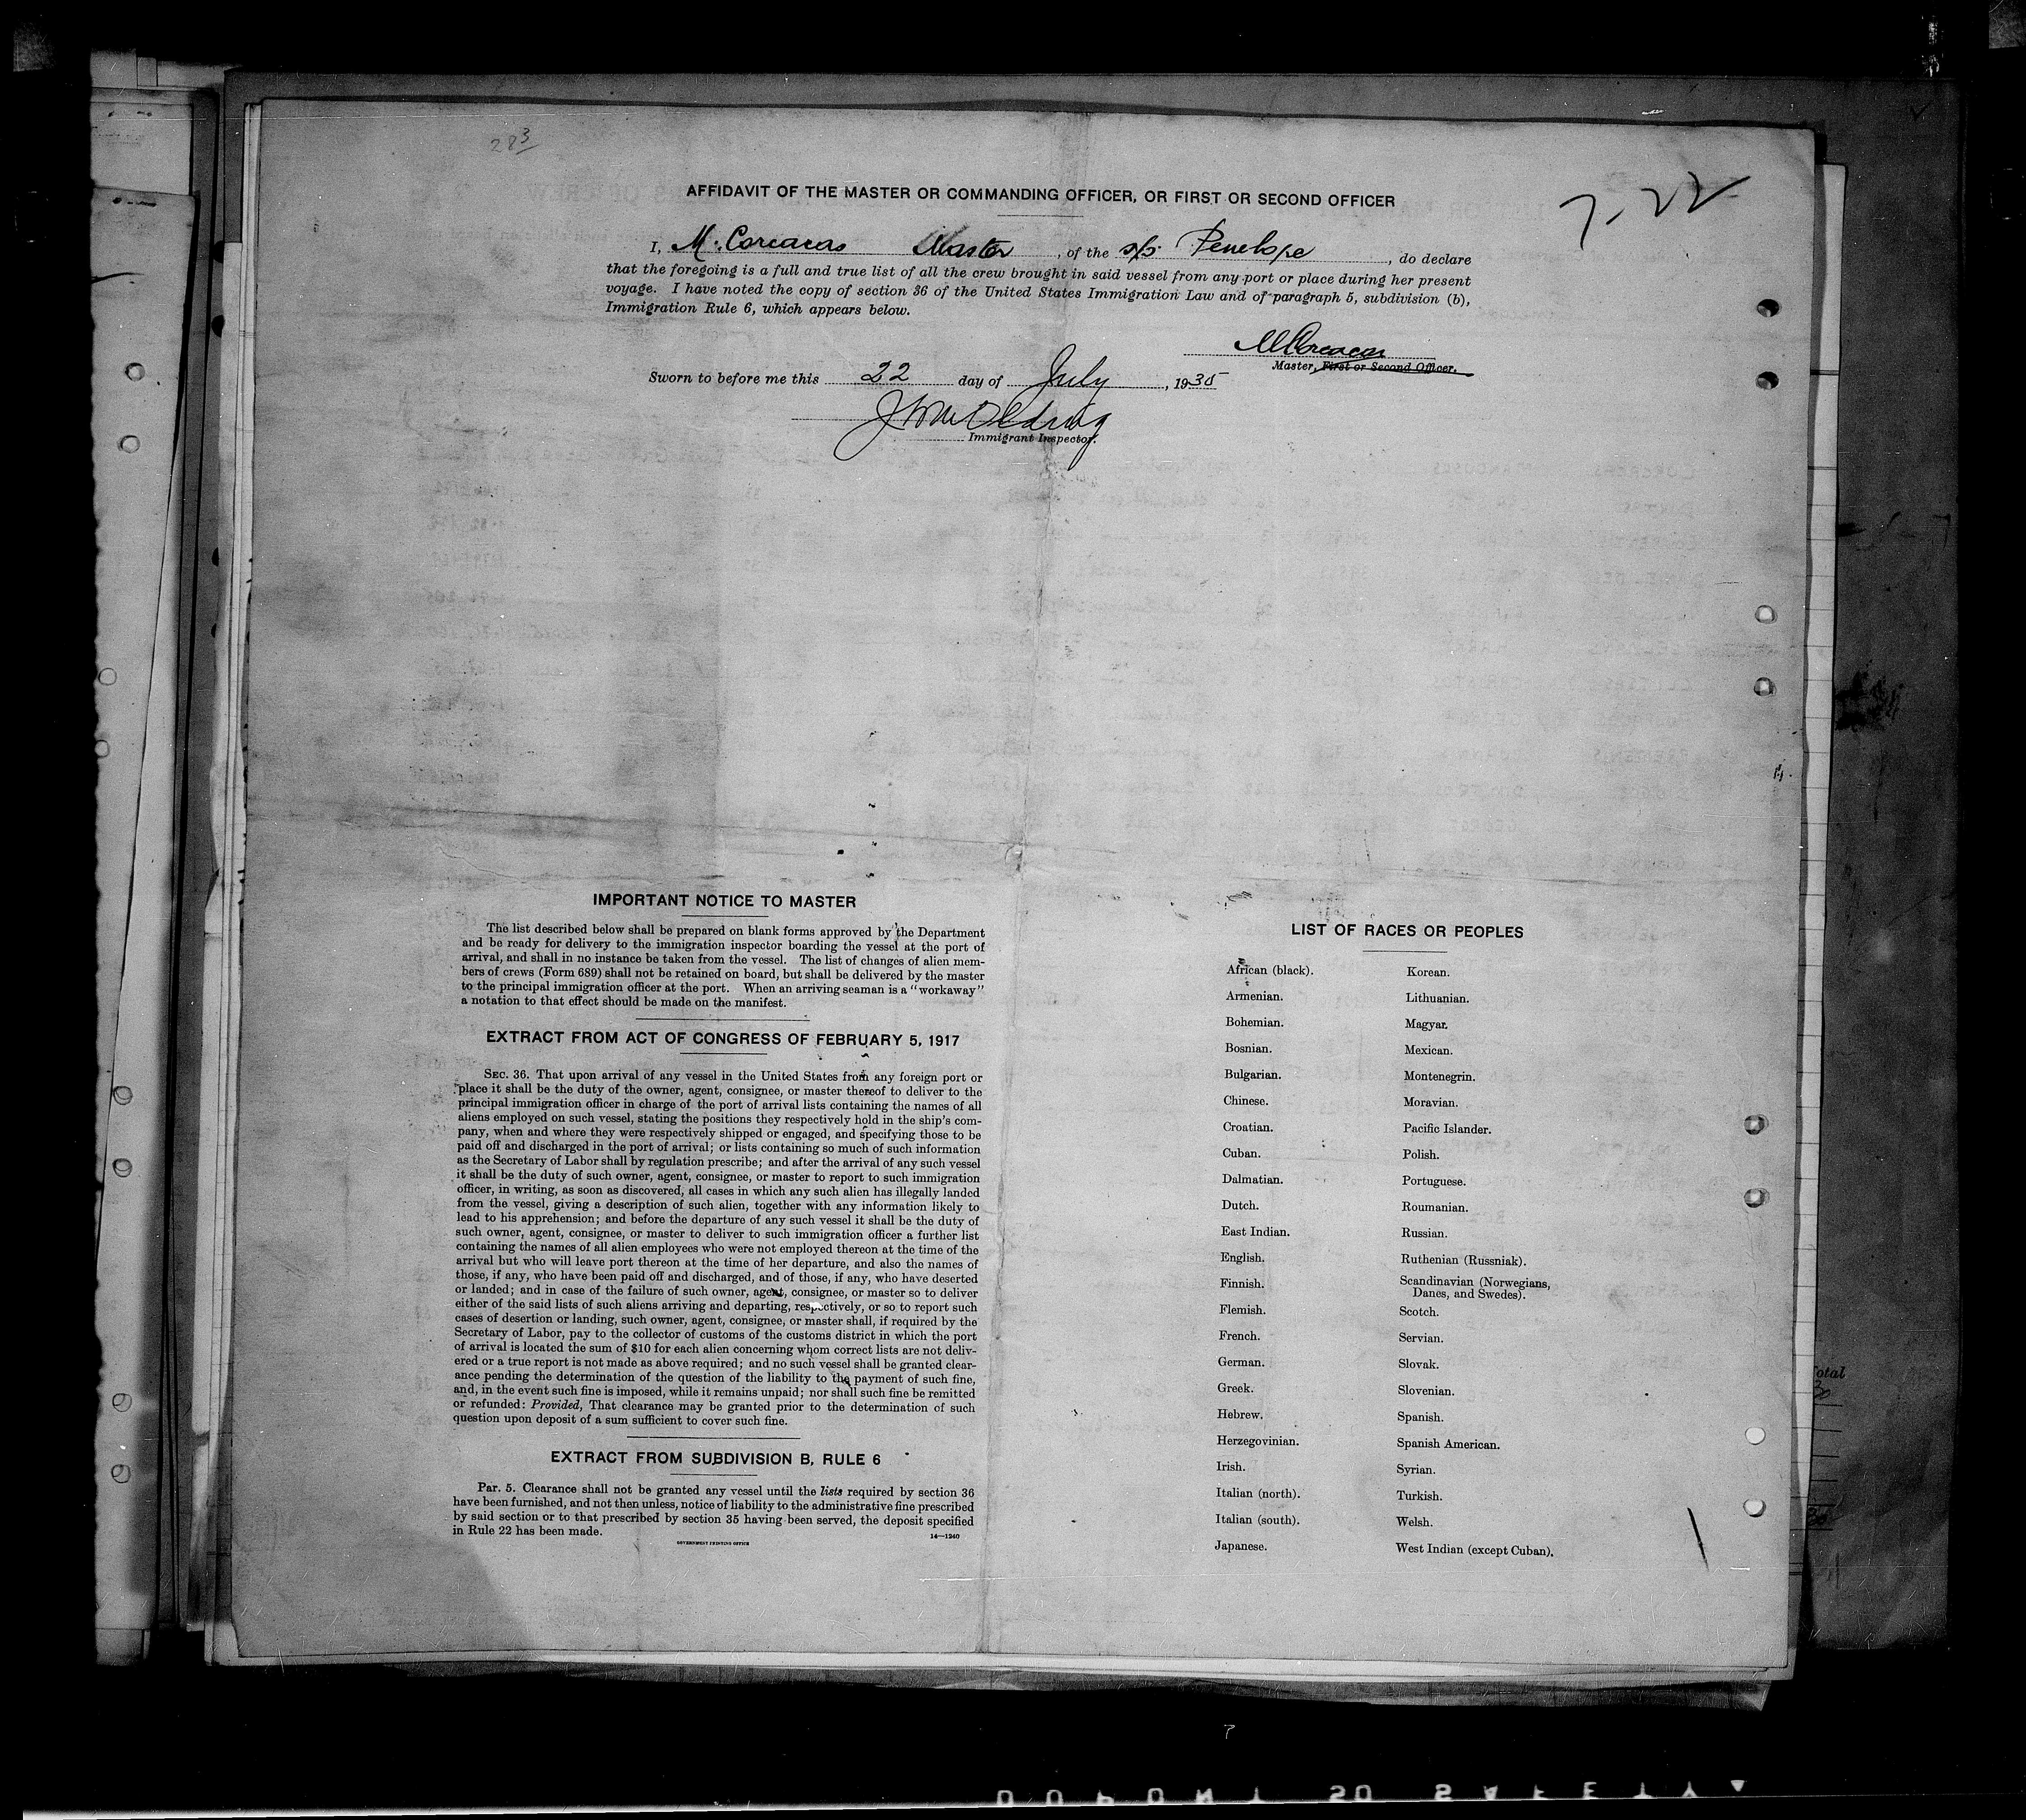 283
7-22
AFFIDAVIT OF THE MASTER OR COMMANDING OFFICER, OR FIRST OR SECOND OFFICER
I, M. Corcacas Master, of the s/s Penelope, do declare
that the foregoing is a full and true list of all the crew brought in said vessel from any port or place during her present
voyage. I have noted the copy of section 36 of the United States Immigration Law and of paragraph 5, subdivision (b),
Immigration Rule 6, which appears below.
Master, First or Second Officer.
Sworn to before me this 22 day of July, 1935
Immigrant Inspector.
IMPORTANT NOTICE TO MASTER
The list described below shall be prepared on blank forms approved by the Department
and be ready for delivery to the immigration inspector boarding the vessel at the port of
arrival, and shall in no instance be taken from the vessel. The list of changes of alien mem-
bers of crews (Form 689) shall not be retained on board, but shall be delivered by the master
to the principal immigration officer at the port. When an arriving seaman is a "workaway"
a notation to that effect should be made on the manifest.
EXTRACT FROM ACT OF CONGRESS OF FEBRUARY 5, 1917
SEC. 36. That upon arrival of any vessel in the United States from any foreign port or
place it shall be the duty of the owner, agent, consignee, or master thereof to deliver to the
principal immigration officer in charge of the port of arrival lists containing the names of all
aliens employed on such vessel, stating the positions they respectively hold in the ship's com-
pany, when and where they were respectively shipped or engaged, and specifying those to be
paid off and discharged in the port of arrival; or lists containing so much of such information
as the Secretary of Labor shall by regulation prescribe; and after the arrival of any such vessel
it shall be the duty of such owner, agent, consignee, or master to report to such immigration
officer, in writing, as soon as discovered, all cases in which any such alien has illegally landed
from the vessel, giving a description of such alien, together with any information likely to
lead to his apprehension; and before the departure of any such vessel it shall be the duty of
such owner, agent, consignee, or master to deliver to such immigration officer a further list
containing the names of all alien employees who were not employed thereon at the time of the
arrival but who will leave port thereon at the time of her departure, and also the names of
those, if any, who have been paid off and discharged, and of those, if any, who have deserted
or landed; and in case of the failure of such owner, agent, consignee, or master so to deliver
either of the said lists of such aliens arriving and departing, respectively, or so to report such
cases of desertion or landing, such owner, agent, consignee, or master shall, if required by the
Secretary of Labor, pay to the collector of customs of the customs district in which the port
of arrival is located the sum of $10 for each alien concerning whom correct lists are not deliv-
ered or a true report is not made as above required; and no such vessel shall be granted clear-
ance pending the determination of the question of the liability to the payment of such fine,
and, in the event such fine is imposed, while it remains unpaid; nor shall such fine be remitted
or refunded: Provided, That clearance may be granted prior to the determination of such
question upon deposit of a sum sufficient to cover such fine.
EXTRACT FROM SUBDIVISION B, RULE 6
Par. 5. Clearance shall not be granted any vessel until the lists required by section 36
have been furnished, and not then unless, notice of liability to the administrative fine prescribed
by said section or to that prescribed by section 35 having been served, the deposit specified
in Rule 22 has been made.
14—1240
GOVERNMENT PRINTING OFFICE
LIST OF RACES OR PEOPLES
African (black).
Armenian.
Bohemian.
Bosnian.
Bulgarian.
Chinese.
Croatian.
Cuban.
Dalmatian.
Dutch.
East Indian.
English.
Finnish.
Flemish.
French.
German.
Greek.
Hebrew.
Herzegovinian.
Irish.
Italian (north).
Italian (south).
Japanese.
Korean.
Lithuanian.
Magyar.
Mexican.
Montenegrin.
Moravian.
Pacific Islander.
Polish.
Portuguese.
Roumanian.
Russian.
Ruthenian (Russniak).
Scandinavian (Norwegians,
Danes, and Swedes).
Scotch.
Servian.
Slovak.
Slovenian.
Spanish.
Spanish American.
Syrian.
Turkish.
Welsh.
West Indian (except Cuban).